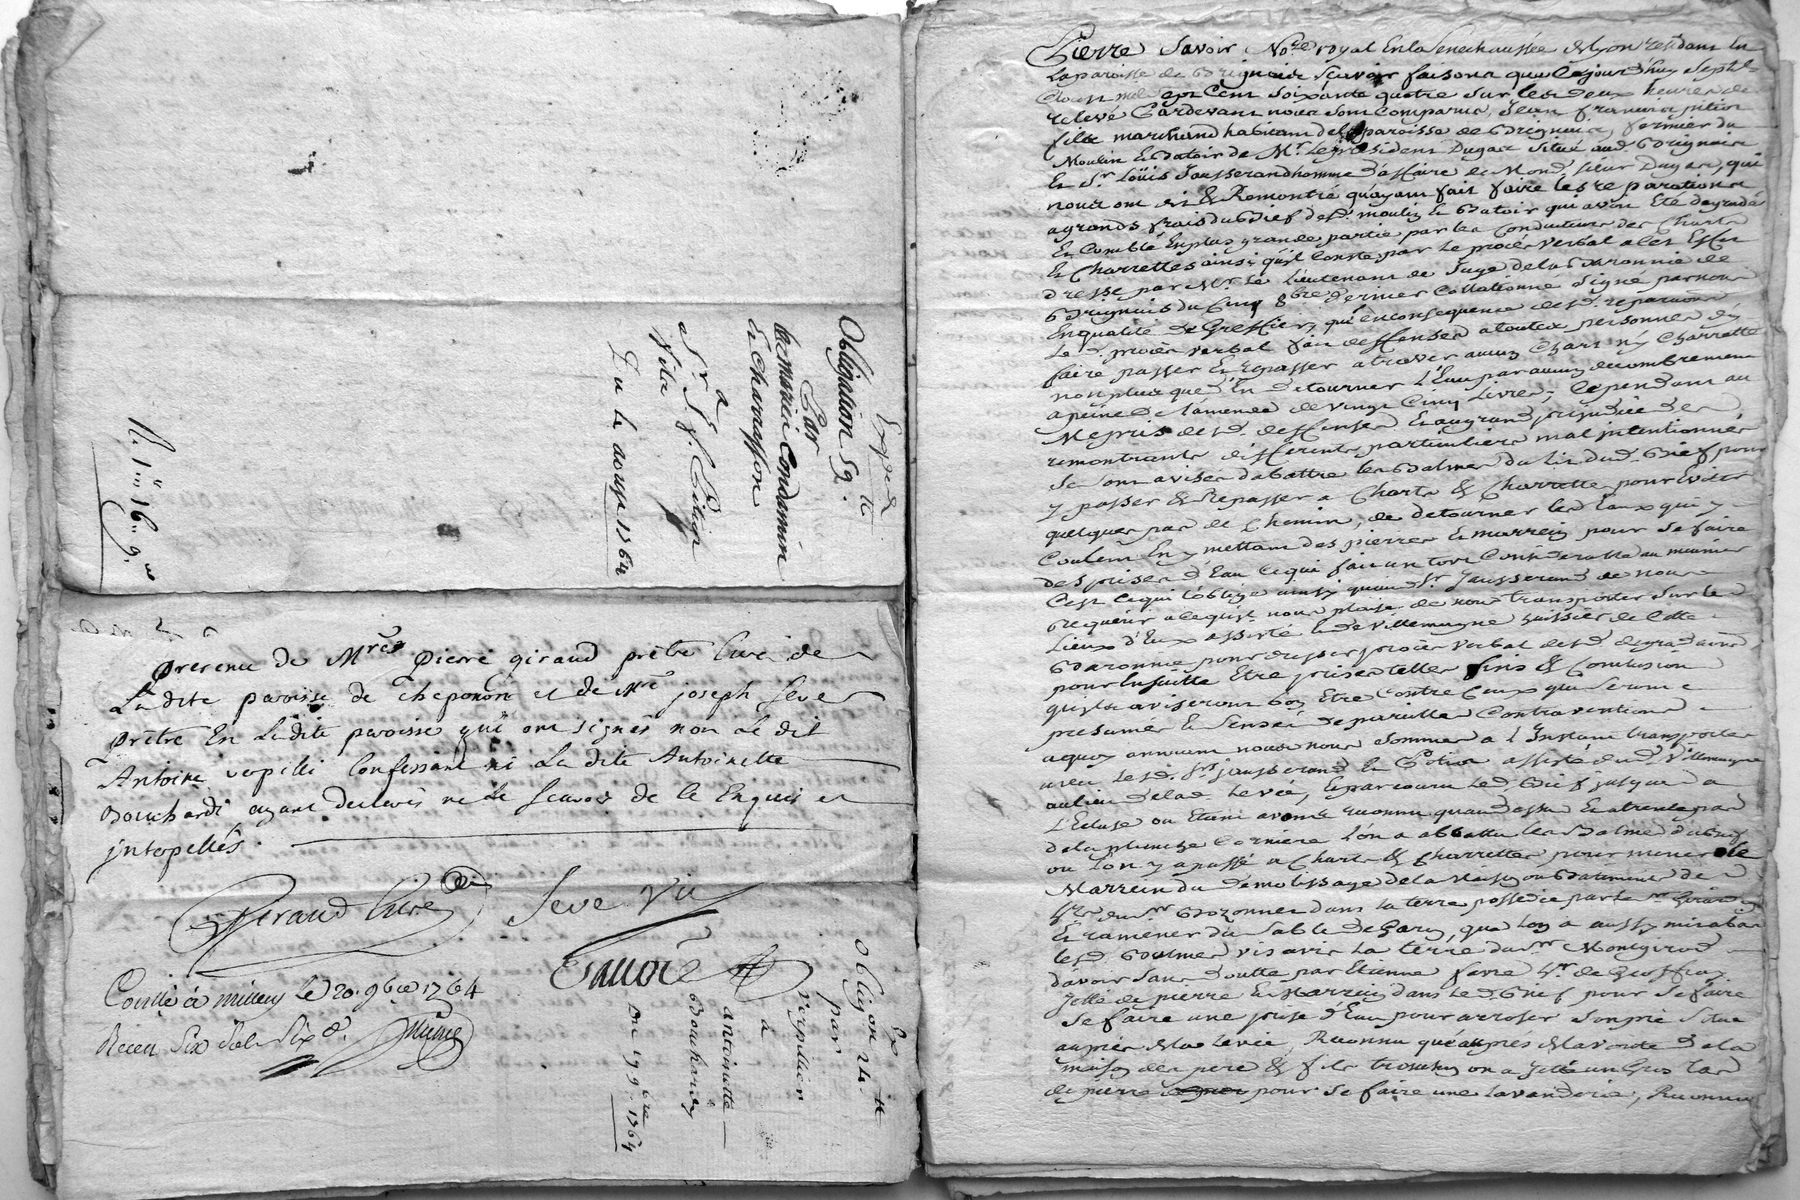 Expéd
Obligation 59.
Par
Condamin
et Charrasson
a
Sr
Du 12 aoust 1764
presence de Mres Pierre giraud prêtre Curé de
La dite paroisse de cheponon et de Mre joseph Seve
prêtre En Ladite paroisse qui ont signés non Le dit
Antoine verpilli Confessant ni La dite Antoinette
Bouchardi ayant declarés ne le scavoir de ce Enquis et
jnterpellés.
Giraud Curé
Seve Vic
Savoie
Conllé à millery le 20. 9bre 1764
Receu Six Sols Six d.
Obligon 24
par
Verpillier
a
antoinette
Bouchardy
Du 19 9bre 1764
Pierre Savoie Nore royal En la Senechaussée de Lyon residant En
La paroisse de Brignais Scavoir faisons que Cejourd'huy Sept
mil sept Cent Soixante quatre Sur les deux heures de
relevé Pardevant nous Sont Comparus, Jean françois pition
fils marchand habitant de la paroisse de Brignais, fermier du
Moulin Et Batoir de Mr Le president Dugas Situé aud. Brignais
Et Sr Loüis Jausserand homme d'affaire de Mond. sieur Dugas, qui
nous ont dit Et Remontré qu'ayant fait faire les reparations
a grands frais du Bief desd. moulin Et Batoir qui avoit Eté degradé
Et Comblé En plus grande partie par les Conducteurs des Chars
Et Charrettes ainsi qu'il Conste par Le procès verbal a cet Effet
dressé par Mr Le Lieutenant de Juge de la Baronnie de
Brignais du Cinq 8bre dernier Collationné Signé par nous
En qualité de Greffier, qu'en consequence desd. reparations
Le d. procès verbal fait deffenses a toutes personnes d'y
faire passer Et Repasser a traver aucun Chars n'y Charrette
non plus que d'En detourner L'Eau par aucun decombrement
a peine de L'amende de vingt Cinq Livres; Cependant au
Mepris desd. deffenses Et au grand prejudice des
remontrants differents particuliers mal jntentionnés
Se Sont avisés d'abattre les Balmes du Lit dud. Bief pour
y passer & Repasser a Chars & Charrette pour Eviter
quelques pas de Chemin, de detourner les Eaux qui y
Coulent En y mettant des pierres Et marrein pour Se faire
des prises d'Eau Ce qui fait un tort Considerable au meunier
C'est Ce qui L'oblige ainsy que led. Sr Jausserand de nous
Requerir a ce qu'il nous plaise de nous transporter Sur les
Lieux d'Eux assisté de Villemagne huissier de Cette
Baronnie pour dresser procès verbal desd. degradations
pour Ensuitte Etre prises telles fins & Conclusions
qu'ils aviseront bon Etre Contre Ceux qui Seront
presumés Et Sensés de pareille Contraventions
a quoy annuant nous nous Sommes a L'Instant transportés
avec Lesd. Srs jausserand Et Pition assisté dud. Villemagne
au lieu de lad. Levée, Et parcouru Led. Bief jusqu'a
L'Ecluse ou Etant avons reconnu qu'au dessus Et a trente pas
de la planche derniere L'on a abbattu les Balmes du Bief
ou L'on y a passé a Chars & Charrettes pour mener le
Marrein du demolissage de la Maison ou Batiments de
Mr Brozonnet dans la terre possedée par le Sr Girard
Et ramener du Sable de Garon, que L'on a aussy mis a bas
Lesd. Balmes vis avis La terre du Sr Montgirod
d'avoir Sans doutte par Etienne favre Gr de Goiffieu
Jetté de pierre Et Marrein dans Led. Bief pour Se faire
Se faire une prise d'Eau pour arroser Son pré Situé
auprès de la Levée, Reconnu qu'auprés de la voute de la
maison des pere & fils on a Jetté un Gros tas
de pierre pour Se faire une Lavanderie, Reconnu